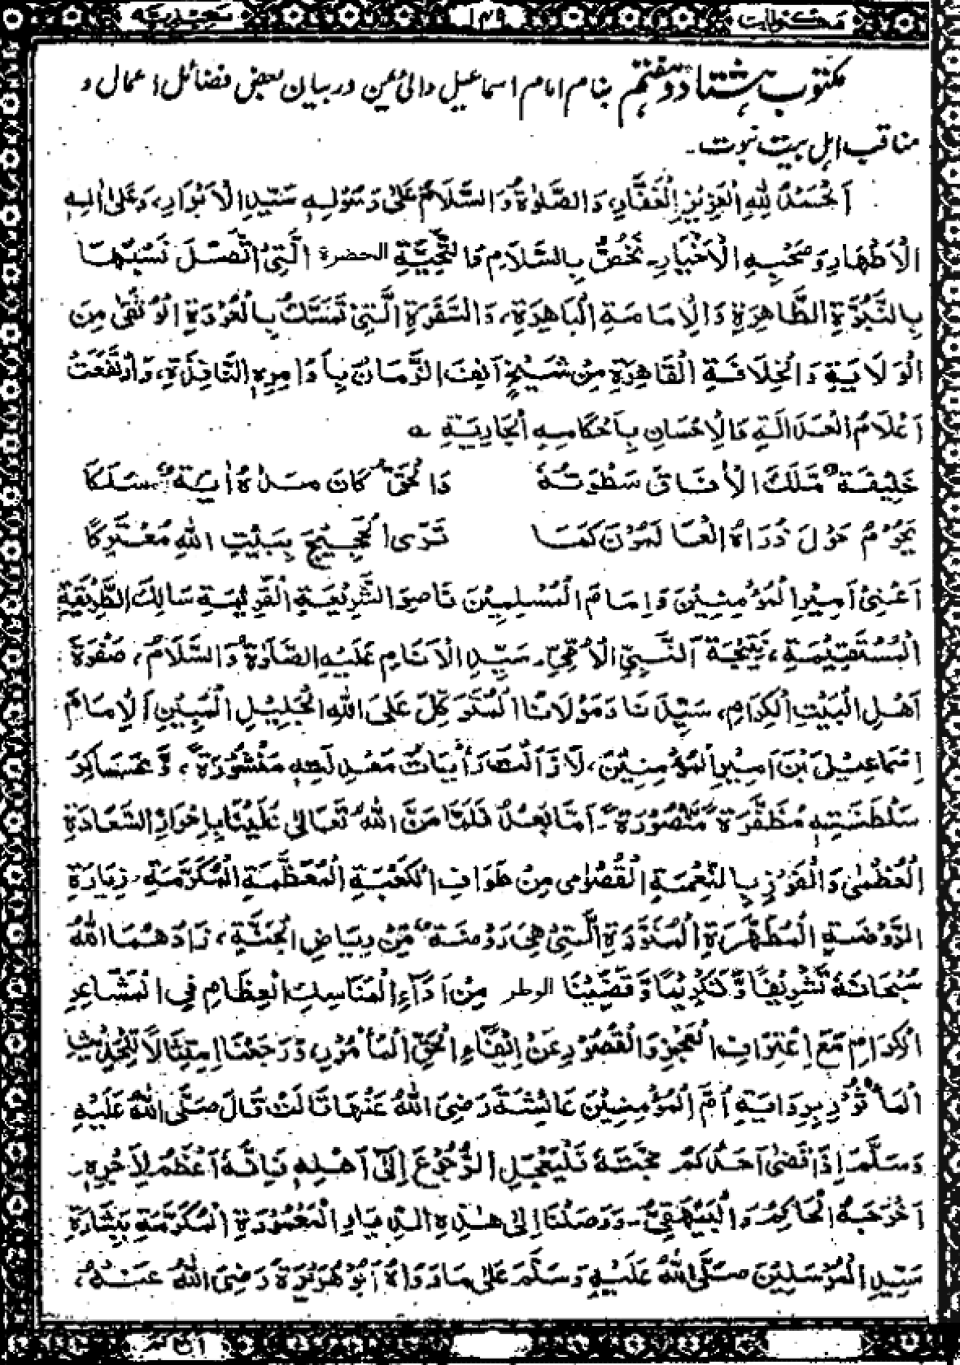 مکتوبات ۱۴۹ سعیدیہ
مکتوب ہشتاد و ہفتم بنام امام اسماعیل والئ یمن در بیان بعض فضائل اعمال و
مناقب اہل بیت نبوت۔
اَلْحَمْدُ لِلّٰهِ الْعَزِيْزِ الْغَفَّارِ، وَالصَّلٰوةُ وَالسَّلَامُ عَلٰى رَسُوْلِهٖ سَيِّدِ الْاَبْرَارِ، وَعَلٰى اٰلِهِ
الْاَطْهَارِ وَصَحْبِهِ الْاَخْيَارِ۔ نَخُصُّ بِالسَّلَامِ وَالتَّحِيَّةِ الحضرة الَّتِىْ اتَّصَلَ نَسَبُهَا
بِالنُّبُوَّةِ الظَّاهِرَةِ وَالْاِمَامَةِ الْبَاهِرَةِ، وَالسَّفَرَةِ الَّتِىْ تَمَسَّكَتْ بِالْعُرْوَةِ الْوُثْقٰى مِنَ
الْوِلَايَةِ وَالْخِلَافَةِ الْقَاهِرَةِ مَنْ شَمَخَ اَنْفُ الزَّمَانِ بِاَوَامِرِهِ النَّافِذَةِ، وَارْتَفَعَتْ
اَعْلَامُ الْعَدَالَةِ وَالْاِحْسَانِ بِاَحْكَامِهِ الْجَارِيَةِ ؎
خَلِيْفَةٌ مَلَكَ الْاٰفَاقَ سَطْوَتُهٗ وَالْحَقُّ كَانَ مَدَاهُ اٰيَةً سَلَكَا
يَحُوْمُ حَوْلَ ذُرَاهُ الْعَالَمُوْنَ كَمَا تَرَى الْحَجِيْجَ بِبَيْتِ اللهِ مُعْتَرِكَا
اَعْنِىْ اَمِيْرَ الْمُؤْمِنِيْنَ وَاِمَامَ الْمُسْلِمِيْنَ نَاصِرَ الشَّرِيْعَةِ الْقَوِيْمَةِ سَالِكَ الطَّرِيْقَةِ
الْمُسْتَقِيْمَةِ، نَتِيْجَةَ النَّبِىِّ الْاُمِّىِّ۔ سَيِّدِ الْاَنَامِ عَلَيْهِ الصَّلٰوةُ وَالسَّلَامُ، صَفْوَةَ
اَهْلِ الْبَيْتِ الْكِرَامِ، سَيِّدَنَا وَمَوْلَانَا الْمُتَوَكِّلَ عَلَى اللهِ الْجَلِيْلِ الْمُبِيْنِ اَلْاِمَامَ
اِسْمَاعِيْلَ بْنَ اَمِيْرِ الْمُؤْمِنِيْنَ، لَا زَالَتْ رَايَاتُ مَعْدِلَتِهٖ مَنْشُوْرَةً، وَعَسَاكِرُ
سَلْطَنَتِهٖ مُظَفَّرَةً مَّنْصُوْرَةً۔ اَمَّا بَعْدُ فَلَمَّا مَنَّ اللهُ تَعَالٰى عَلَيْنَا بِاِحْرَازِ السَّعَادَةِ
الْعُظْمٰى وَالْفَوْزِ بِالنِّعْمَةِ الْقُصْوٰى مِنْ طَوَافِ الْكَعْبَةِ الْمُعَظَّمَةِ الْمُكَرَّمَةِ زِيَارَةِ
الرَّوْضَةِ الْمُطَهَّرَةِ الْمُنَوَّرَةِ الَّتِىْ هِىَ رَوْضَةٌ مِّنْ رِيَاضِ الْجَنَّةِ، زَادَهُمَا اللهُ
سُبْحَانَهٗ تَشْرِيْفًا وَّتَكْرِيْمًا وَقَضَيْنَا الوطر مِنْ اَدَآءِ الْمَنَاسِكِ الْعِظَامِ فِى الْمَشَاعِرِ
الْكِرَامِ مَعَ اعْتِرَافِ الْعَجْزِ وَالْقُصُوْرِ عَنْ اِيْفَاءِ الْحَقِّ الْمَأْمُوْرِ، وَرَجَعْنَا اِمْتِثَالًا لِّلْحَدِيْثِ
الْمَأْثُوْرِ بِرِوَايَةِ اُمِّ الْمُؤْمِنِيْنَ عَائِشَةَ رَضِىَ اللهُ عَنْهَا قَالَتْ قَالَ صَلَّى اللهُ عَلَيْهِ
وَسَلَّمَ اِذَا قَضٰى اَحَدُكُمْ حَجَّتَهٗ فَلْيُعَجِّلِ الرُّجُوْعَ اِلٰى اَهْلِهٖ فَاِنَّهٗ اَعْظَمُ لِاَجْرِهٖ۔
اَخْرَجَهُ الْحَاكِمُ وَالْبَيْهَقِىُّ۔ وَوَصَلْنَا اِلٰى هٰذِهِ الدِّيَارِ الْمَعْمُوْرَةِ الْمُكَرَّمَةِ بِبَشَارَةِ
سَيِّدِ الْمُرْسَلِيْنَ صَلَّى اللهُ عَلَيْهِ وَسَلَّمَ عَلٰى مَا رَوَاهُ اَبُوْهُرَيْرَةَ رَضِىَ اللهُ عَنْهُ،